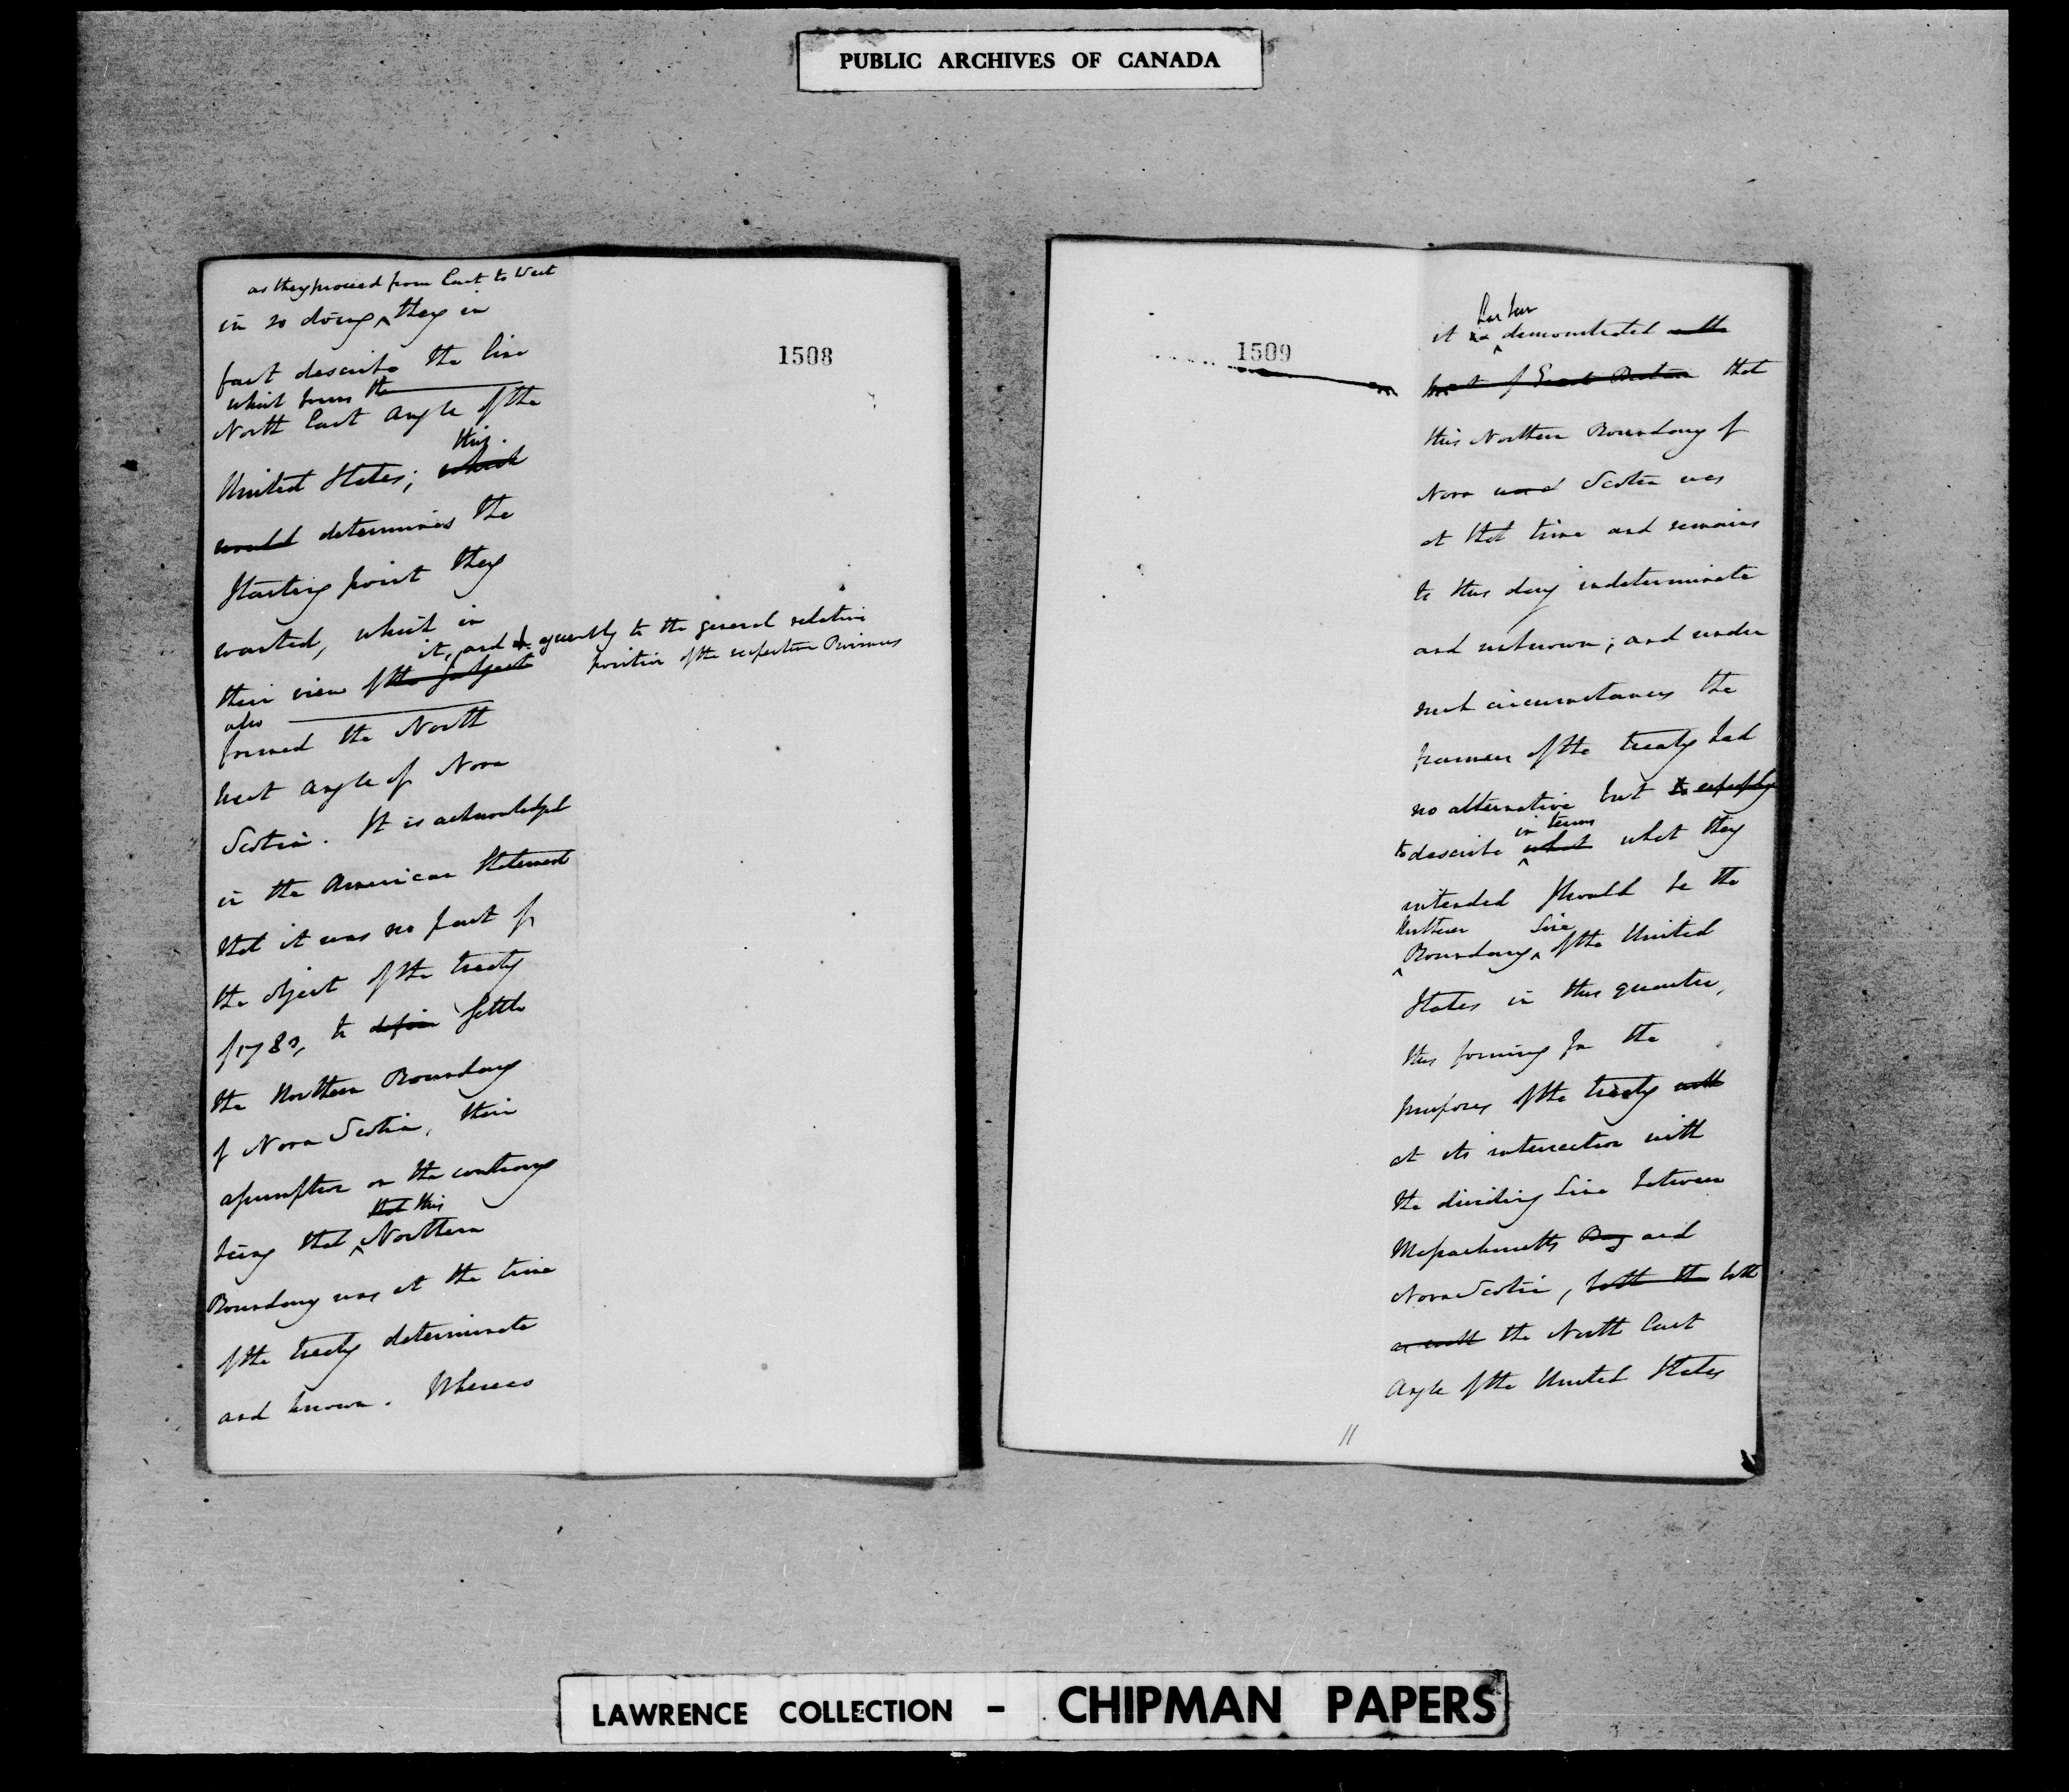 PUBLIC ARCHIVES OF CANADA
1508
as they proceed from East to West
in so doing ^ they in
fact describe the line
which forms the
North East Angle of the
this
United States; which
would determines the
starting point they
wanted, which in
it, and agreeably to the general relative
their view of the subject position of the respective Provinces
also
formed the North
West Angle of Nova
Scotia. It is acknowledged
in the American Statement
that it was no part of
the object of the treaty
of 1783, to define settle
the Northern Boundary
of Nova Scotia, their
assumption on the contrary
that this
being that ^ Northern
Boundary was at the time
of the treaty determinate
and known. Whereas
1509
has been
it is ^ demonstrated on the
part of Great Britain that
this Northern Boundary of
Nova and Scotia was
at that time and remains
to this day indeterminate
and unknown; and under
such circumstances the
framers of the treaty had
no alternative but to
in terms
to describe ^ what what they
intended should be the
Northern Line
^ Boundary ^ of the United
States in this quarter,
thus forming for the
purposes of the treaty with
at its intersection with
the dividing line between
Massachusetts Bay and
Nova Scotia, both the both
as well the North East
Angle of the United States
11
LAWRENCE COLLECTION - CHIPMAN PAPERS